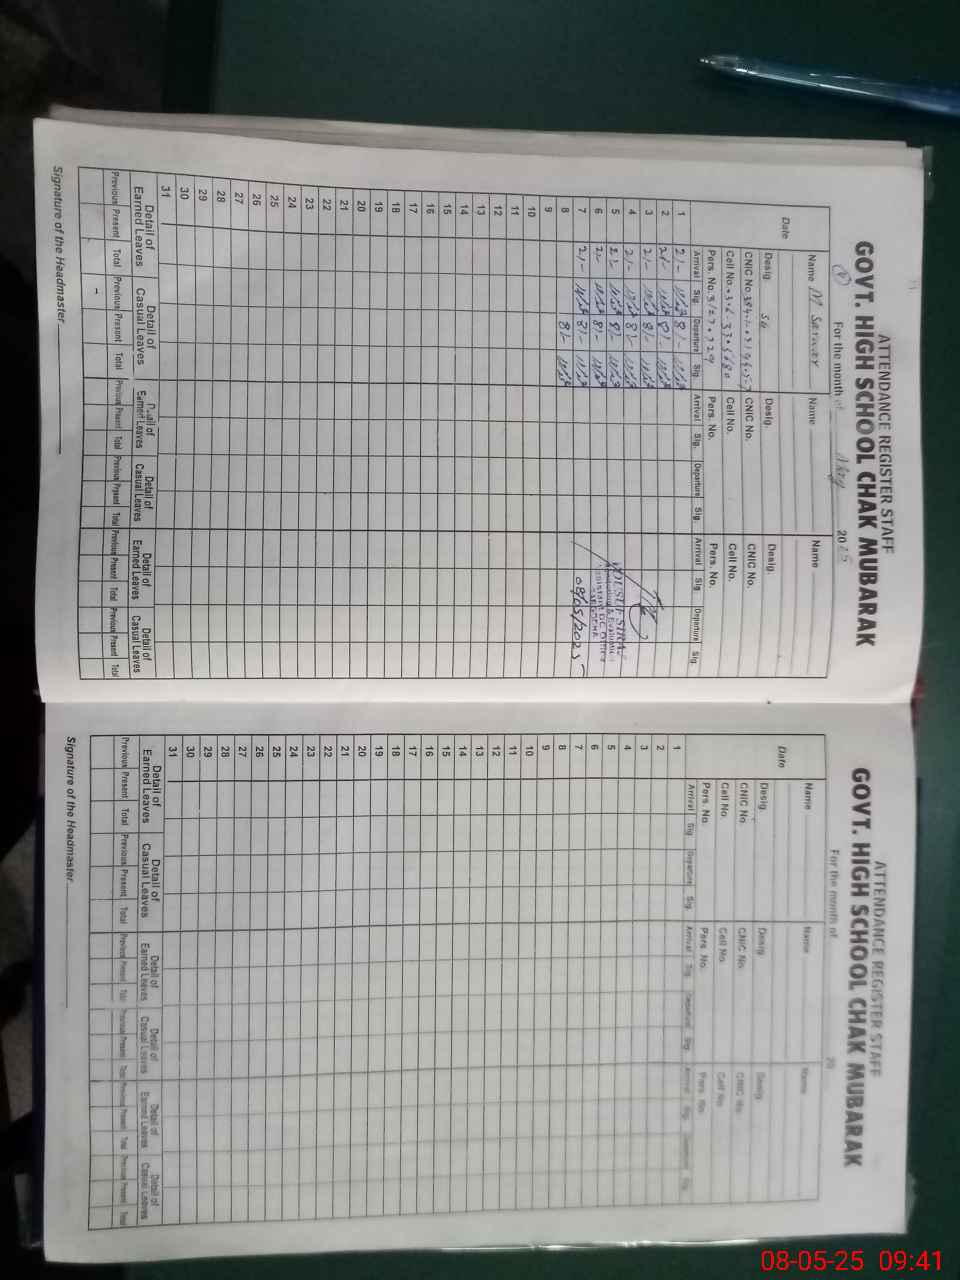 ATTENDANCE REGISTER STAFF
GOVT. HIGH SCHOOL CHAK MUBARAK
For the month of May 2025
Name M Sarwar Name Name
Date
Desig. SG Desig. Desig.
CNIC No. CNIC No. CNIC No.
Cell No. Cell No. Cell No.
Pers. No. Pers. No. Pers. No.
Arrival Sig. Departure Sig. Arrival Sig. Departure Sig. Arrival Sig. Departure Sig.
1 2/- 8/-
2 2/- 8/-
3 2/- 8/-
4 2/- 8/-
5 2/- 8/-
6 2/- 8/-
7 2/- 8/-
8 8/-
9
10
11
12
13
14
15
16
17
18
19
20
21
22
23
24
25
26
27
28
29
30
31
YOUSUF SIRAJ
Monitoring & Evaluation
Assistant DC Office
SARGODHA
08/05/2025
Detail of Earned Leaves Detail of Casual Leaves Detail of Earned Leaves Detail of Casual Leaves Detail of Earned Leaves Detail of Casual Leaves
Previous Present Total Previous Present Total Previous Present Total Previous Present Total Previous Present Total Previous Present Total
Signature of the Headmaster
ATTENDANCE REGISTER STAFF
GOVT. HIGH SCHOOL CHAK MUBARAK
For the month of 20
Name Name Name
Date
Desig. Desig. Desig.
CNIC No. CNIC No. CNIC No.
Cell No. Cell No. Cell No.
Pers. No. Pers. No. Pers. No.
Arrival Sig. Departure Sig. Arrival Sig. Departure Sig. Arrival Sig. Departure Sig.
1
2
3
4
5
6
7
8
9
10
11
12
13
14
15
16
17
18
19
20
21
22
23
24
25
26
27
28
29
30
31
Detail of Earned Leaves Detail of Casual Leaves Detail of Earned Leaves Detail of Casual Leaves Detail of Earned Leaves Detail of Casual Leaves
Previous Present Total Previous Present Total Previous Present Total Previous Present Total Previous Present Total Previous Present Total
Signature of the Headmaster
08-05-25 09:41